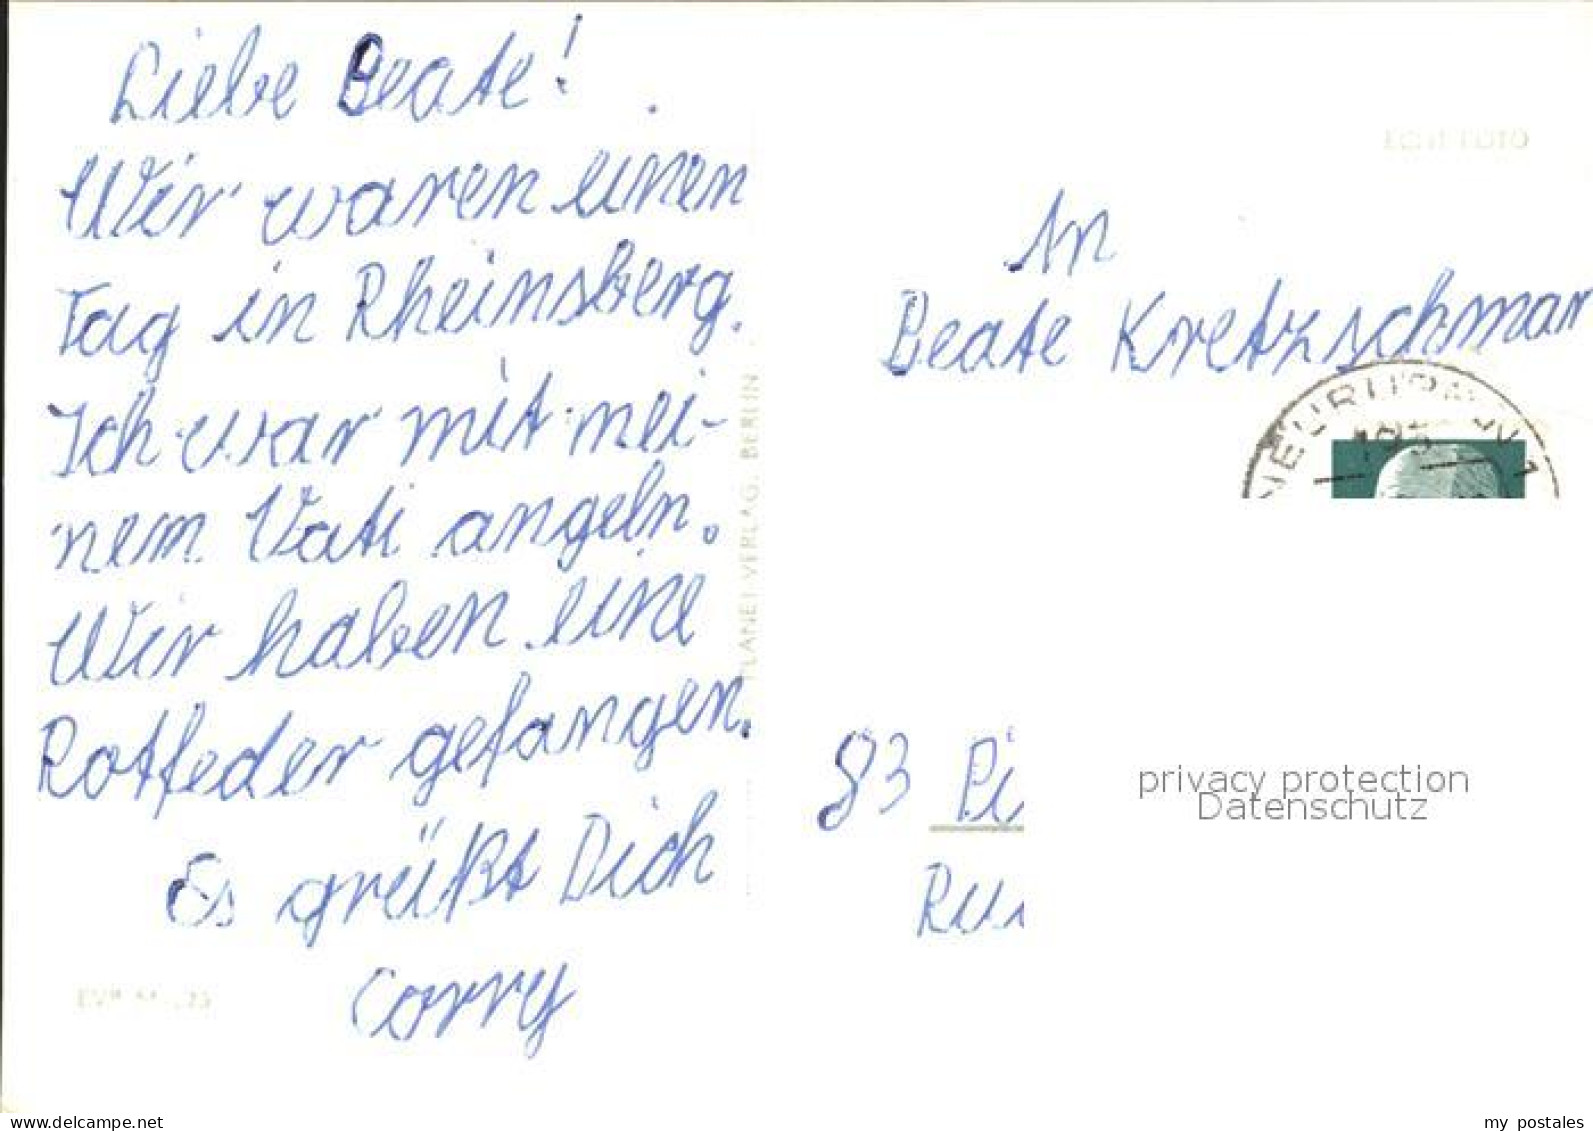 Liebe Beate!
Wir waren einen
Tag in Rheinsberg.
Ich war mit mei-
nem Vati angeln.
Wir haben eine
Rotfeder gefangen.
Es grüßt Dich
Corry
PLANET-VERLAG, BERLIN
ECHT FOTO
An
Beate Kretzschmar
NEURUPPIN 1
83 Pi
privacy protection
Datenschutz
delcampe.net
my_postales